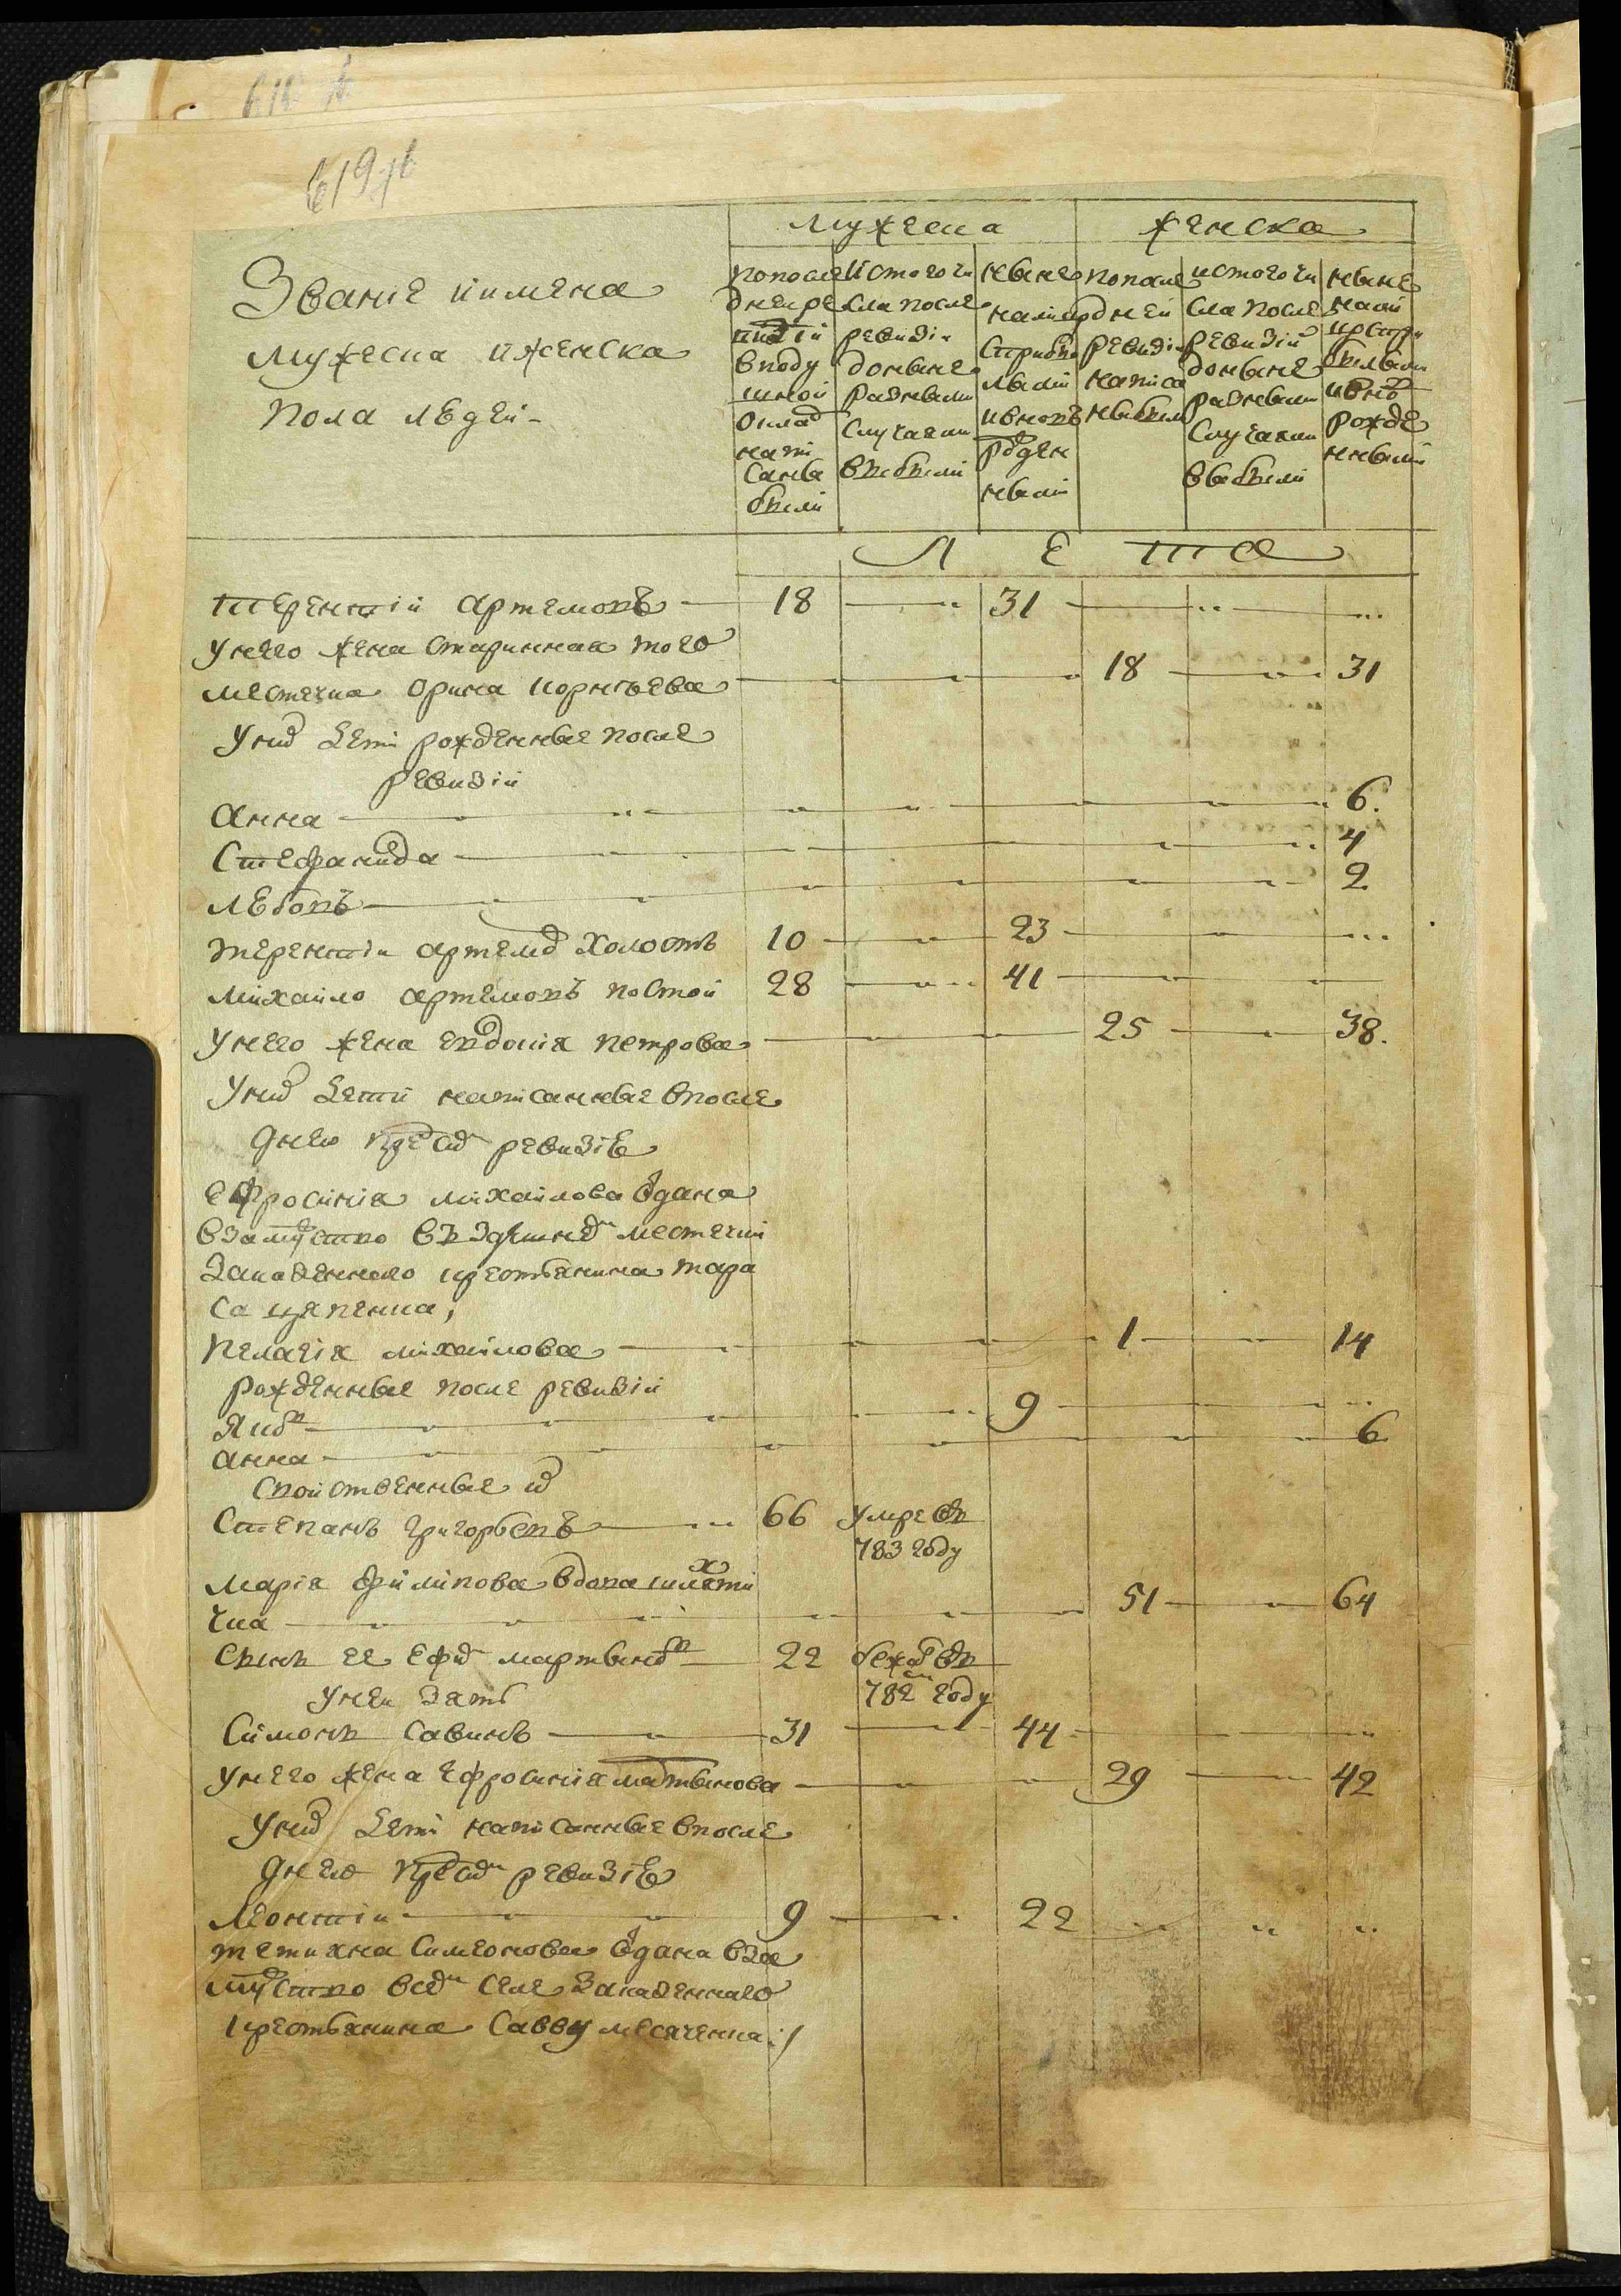 619 об
Званïе иимена
мужеска ижѣнска
пола людей
мужеска
женска
попосле
дней ре
визïи
вподу
шной
оклад
напи
саны
были
Изтого чи
сла после
ревизïи
доныне
разными
случаями
выбыли
ныне
налицо
сприбы
лыми
ивновъ
рожден
ными
попосле
дней
ревизïи
написа
ны были
изтого чи
сла после
ревизïи
доныне
разными
случаями
выбыли
ныне
нали
цо спри
былыми
ивновъ
рожде
нными
Л Е Т А
Терентïй Артемовъ 18 31
унего жена старинная того
местечка Орина Корнѣева 18 31
уних дети рожденные после
ревизïи
Анна 6.
Стефанида 4
Любовь 2
Терентïй Артемов холостъ 10 23
Михайло Артемовъ 28 41
унего жена Евдокïя Петрова 25 38.
уних дети написанные впосле
днею пред сим ревизïю
Ефросинïя Михайлова одана
взамужство въ здешнем местечки
заказенного крестьянина Тара
са
Пелагïя Михайлова 1 14
рожденные после ревизïи
Яков 9
Анна 6
свойственные их
Степанъ Григорьевъ 66 умре въ
783 году
Марïя Филипова вдова
чка 51 64
Сынъ ее Ефим Мартынов 22 бежал въ
782 году
унеи зять
Симонъ Савинъ 31 44
унего жена Ефросинïя Мартынова 29 42
уних дети написанные впосле
днею пред сим ревизïю
Леонтïй 9 22
Тетияна Симонова одана вза
мужство всем селе заказенного
крестьянина Савву